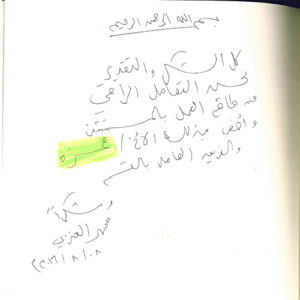 بسم الله الرحمن الرحيم
كل الشكر والتقدير
لحسن التعامل الراقي
من طاقم العمل بالمستشفى
وأخص بذلك الأخ /
والفريق العامل بالقسم
وشكراً
العنزي